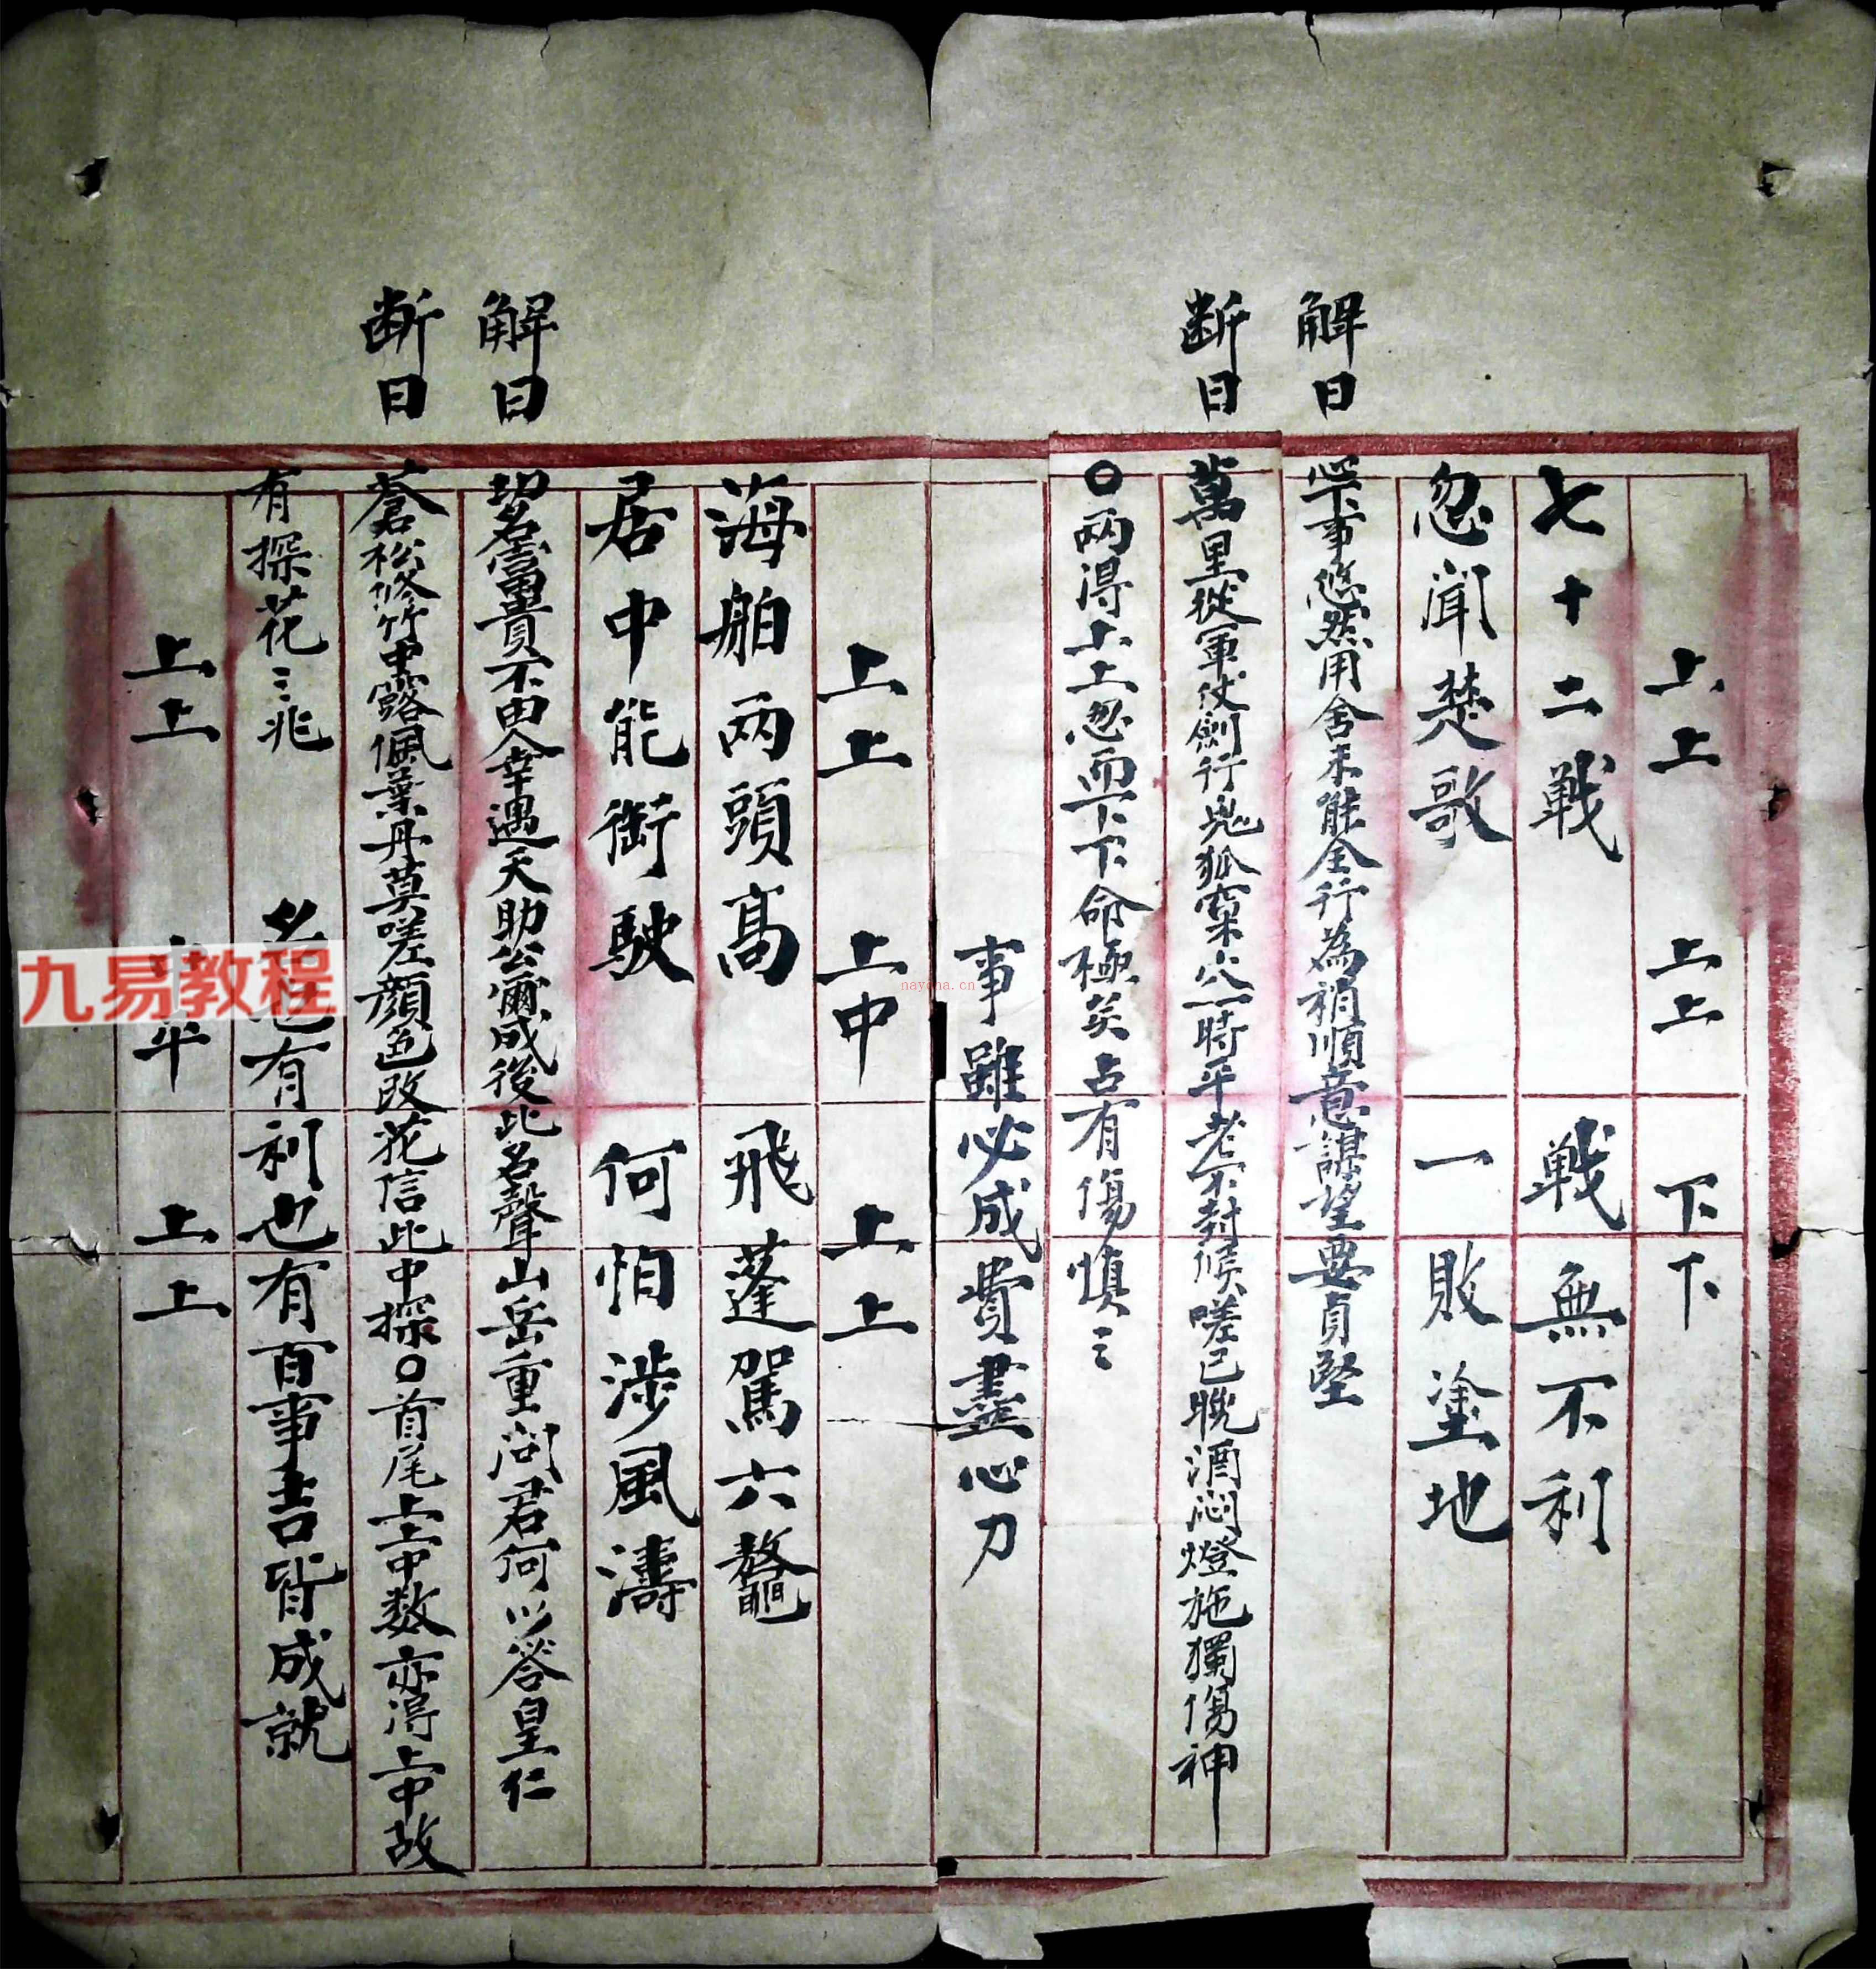 上上 上上 下下
七十二戰 戰無不利
忽聞楚歌 一敗塗地
解曰
事悠然用舍未能全行為稍順意謀望要貞堅
斷曰
萬里從軍仗劍行兎狐窠穴一時平老不封候嗟已晚酒悶燈施獨傷神
〇兩得上上忽而下下命極矣占有傷慎〻
事雖必成費盡心力
上上 上中 上上
海舶兩頭高 飛蓬駕六鼇
居中能衝駛 何怕涉風濤
解曰
功名富貴不由人幸遇天助公爾成後此名聲山岳重問君何以答皇仁
斷曰
蒼松修竹中露佩葉丹莫嗟顏色改花信此中探〇首尾上上中数亦得上中故
有探花之兆 名也有利也有百事吉皆成就
上上 中平 上上
九易教程
nayona.cn